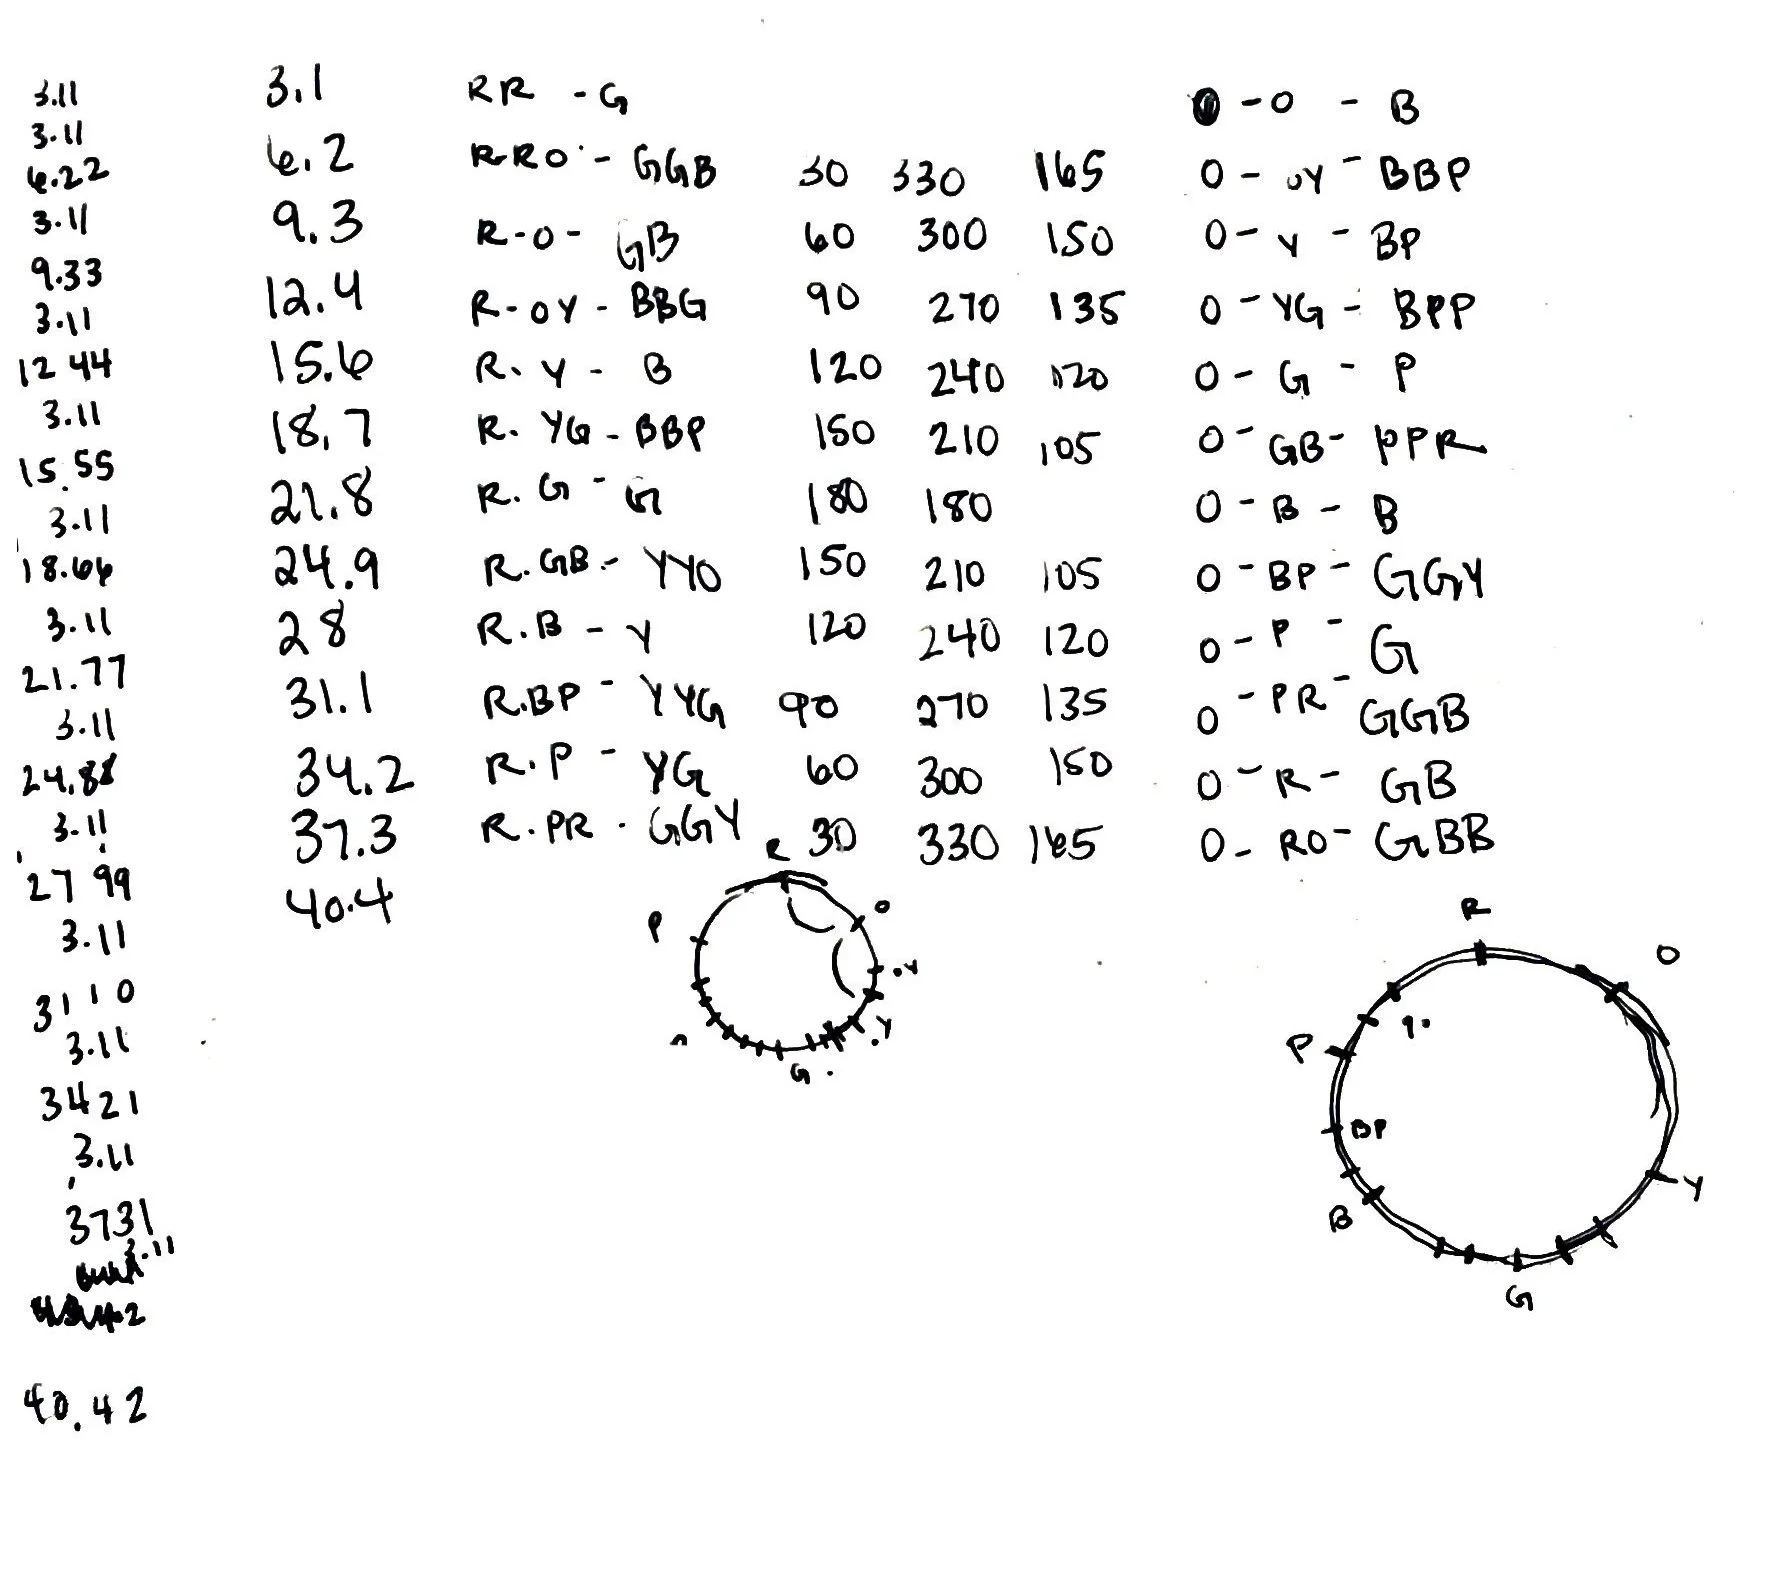 3.11
3.11
6.22
3.11
9.33
3.11
12 44
3.11
15.55
3.11
18.66
3.11
21.77
3.11
24.88
3.11
27 99
3.11
31 10
3.11
34 21
3.11
3731
3.11
40.42
3.1
6.2
9.3
12.4
15.6
18.7
21.8
24.9
28
31.1
34.2
37.3
40.4
RR - G
R-RO - GGB 30 330 165
R-O- GB 60 300 150
R-OY - BBG 90 270 135
R. Y - B 120 240 120
R. YG - BBP 150 210 105
R. G - G 180 180
R.GB - YYO 150 210 105
R.B - Y 120 240 120
R.BP - YYG 90 270 135
R.P - YG 60 300 150
R.PR . GGY 30 330 165
- O - B
O - OY - BBP
O - Y - BP
O - YG - BPP
O - G - P
O - GB - PPR
O - B - B
O - BP - GGY
O - P - G
O - PR - GGB
O - R - GB
O - RO - GBB
R
O
P
.Y
.Y
G .
R
O
P
90
BP
Y
B
G